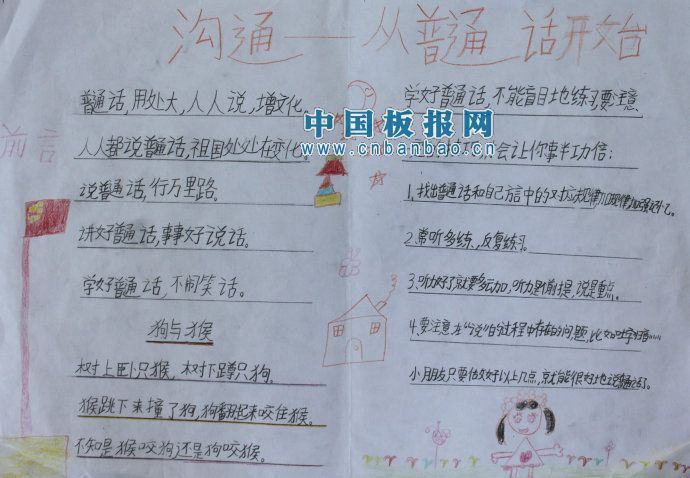 沟通——从普通话开始
前言
普通话,用处大,人人说,增文化。
人人都说普通话,祖国处处在变化。
说普通话,行万里路。
讲好普通话,事事好说话。
学好普通话,不闹笑话。
狗与猴
树上卧只猴,树下蹲只狗。
猴跳下来撞了狗,狗翻起来咬住猴。
不知是猴咬狗还是狗咬猴。
中国板报网
www.cnbanbao.cn
学好普通话,不能盲目地练习,要注意
会让你事半功倍:
1.找出普通话和自己方言中的对应规律,
2.常听多练,反复练习。
3.听力好了就要多动口,听力是前提,说是重点。
4.要注意在“说”的过程中存在的问题,比如吐字
小朋友只要做好以上几点,就能很好地说普通话了。